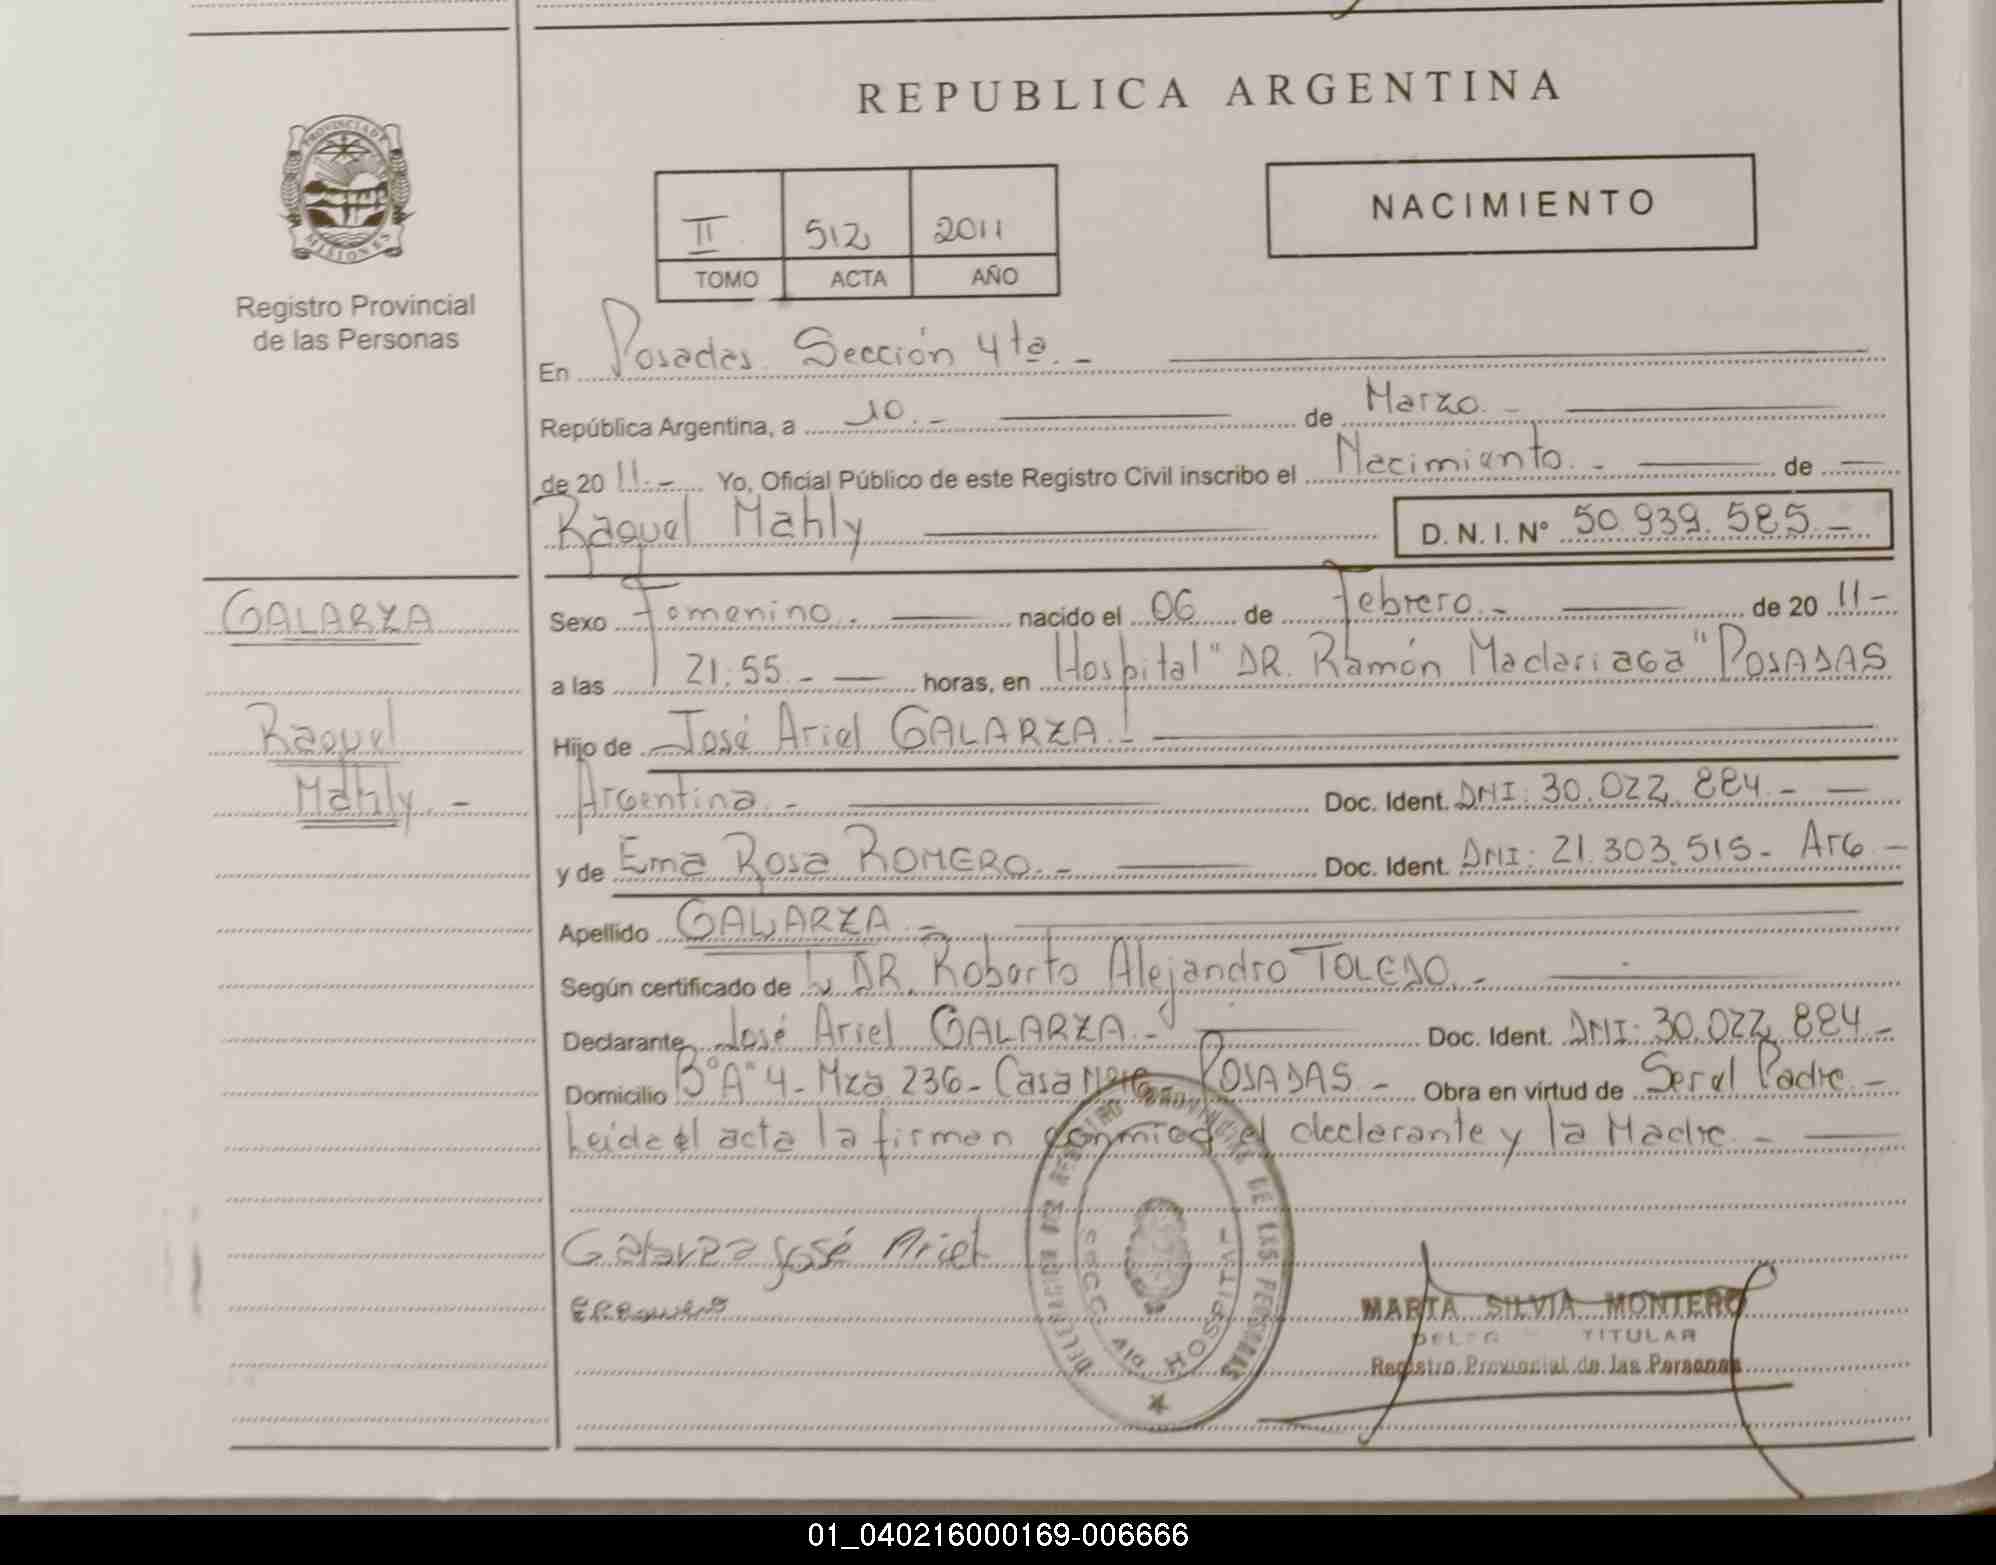 REPUBLICA ARGENTINA
PROVINCIA DE
MISIONES
Registro Provincial
de las Personas
II 512 2011
TOMO ACTA AÑO
NACIMIENTO
En Posadas Sección 4ta. -
República Argentina, a 10. - de Marzo. -
de 20 11. - Yo, Oficial Público de este Registro Civil inscribo el Nacimiento. - de -
Raquel Mahly D. N. I. Nº 50.939.585. -
GALARZA
Raquel
Mahly. -
Sexo Femenino. nacido el 06 de Febrero. - de 20 11 -
a las 21:55. - horas, en Hospital "DR. Ramón Madariaga" POSADAS
Hijo de José Ariel GALARZA. -
Argentina. - Doc. Ident. DNI: 30.022.884. -
y de Ema Rosa ROMERO. - Doc. Ident. DNI: 21.303.515 - Arg -
Apellido GALARZA -
Según certificado de DR. Roberto Alejandro TOLEDO. -
Declarante José Ariel GALARZA. - Doc. Ident. DNI: 30.022.884. -
Domicilio Bº "A" 4 - Mza 236 - Casa POSADAS - Obra en virtud de Ser el Padre. -
Leida el acta la firman conmigo el declarante y la Madre. -
Galarza José Ariel
DELEGACION DEL REGISTRO PROVINCIAL DE LAS PERSONAS
SECC. 4ta HOSPITAL
MARTA SILVIA MONTERO
TITULAR
Registro Provincial de las Personas
01_040216000169-006666